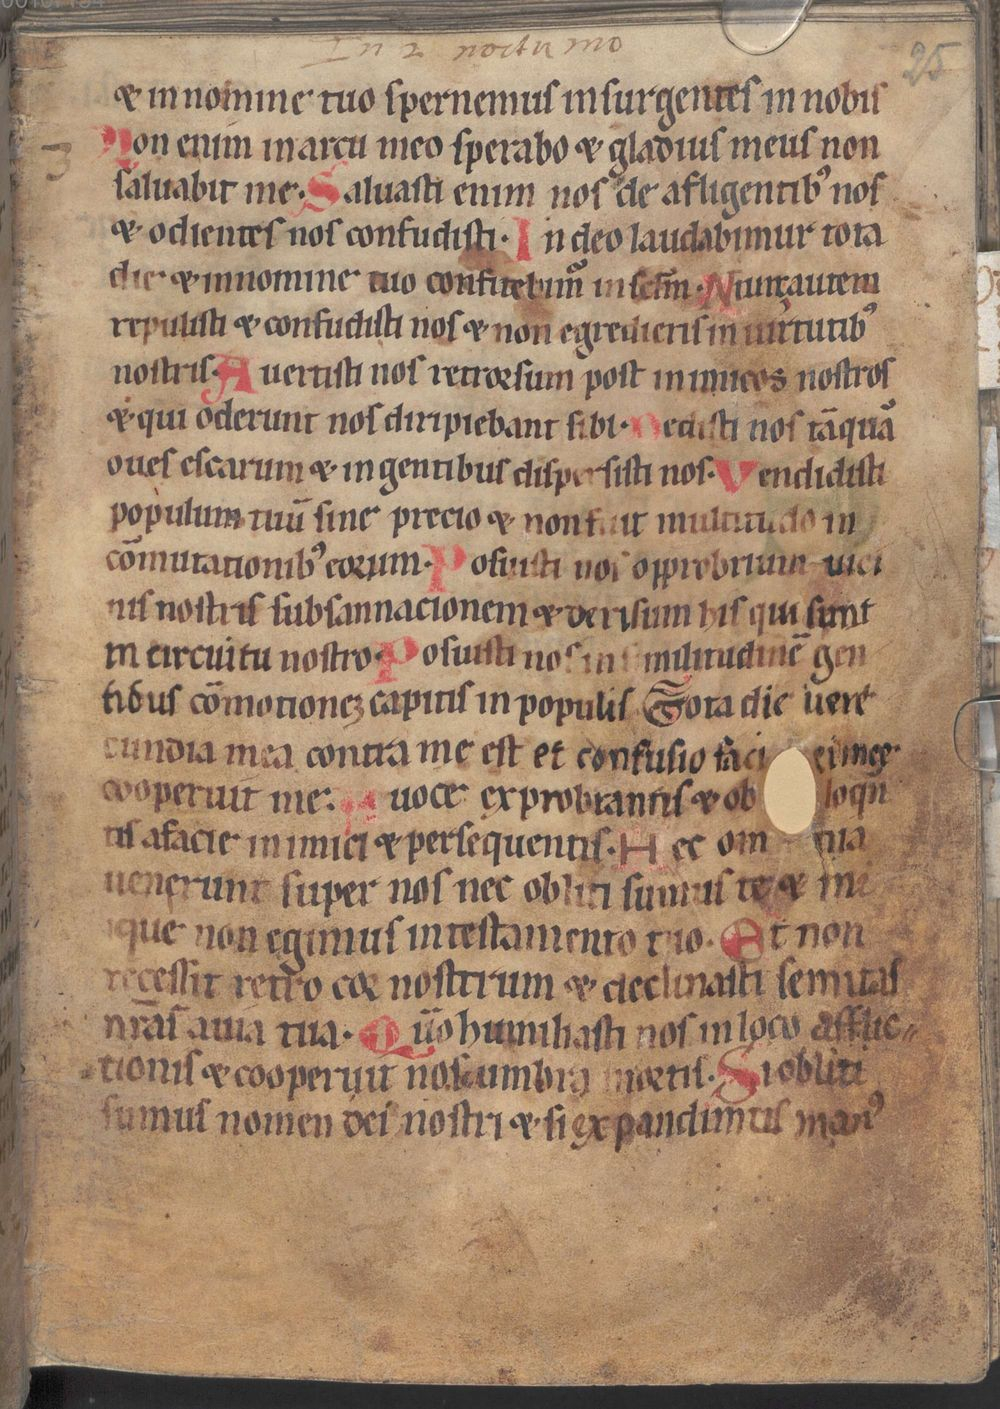 In 2 nocturno
25
& in nomine tuo spernemus insurgentes in nobis
3
Non enim in arcu meo sperabo & gladius meus non
saluabit me. Saluasti enim nos de afligentibꝰ nos
& odientes nos confudisti. In deo laudabimur tota
die & in nomine tuo confitebim̄ in sclm̄. Nunc autem
repulisti & confudisti nos & non egredieris in uirtutibꝰ
nostris. Auertisti nos retrorsum post inimicos nostros
& qui oderunt nos diripiebant sibi. Dedisti nos tāquā
oues escarum & in gentibus dispersisti nos. Vendidisti
populum tuū sine precio & non fuit multitudo in
cōmutationibꝰ eoꝝum. Posuisti nos opprobrium uici
nis nostris subsannacionem & derisum his qui sunt
in circuitu nostro. Posuisti nos in similitudinē gen
tibus cōmotioneꝫ capitis in populis Tota die uere
cundia mea contra me est et confusio faci ei meę
cooperuit me. A uoce exprobrantis & ob loqn
tis a facie inimici & persequentis. Hec om nia
uenerunt super nos nec obliti sumus te & ini
que non egimus in testamento tuo. Et non
recessit retro coꝛ nostrum & declinasti semitas
nr̄as a uia tua. Qūo humiliasti nos in loco afflic-
tionis & cooperuit nos umbra mortis. Si obliti
sumus nomen dei nostri & si expandimus manꝰ